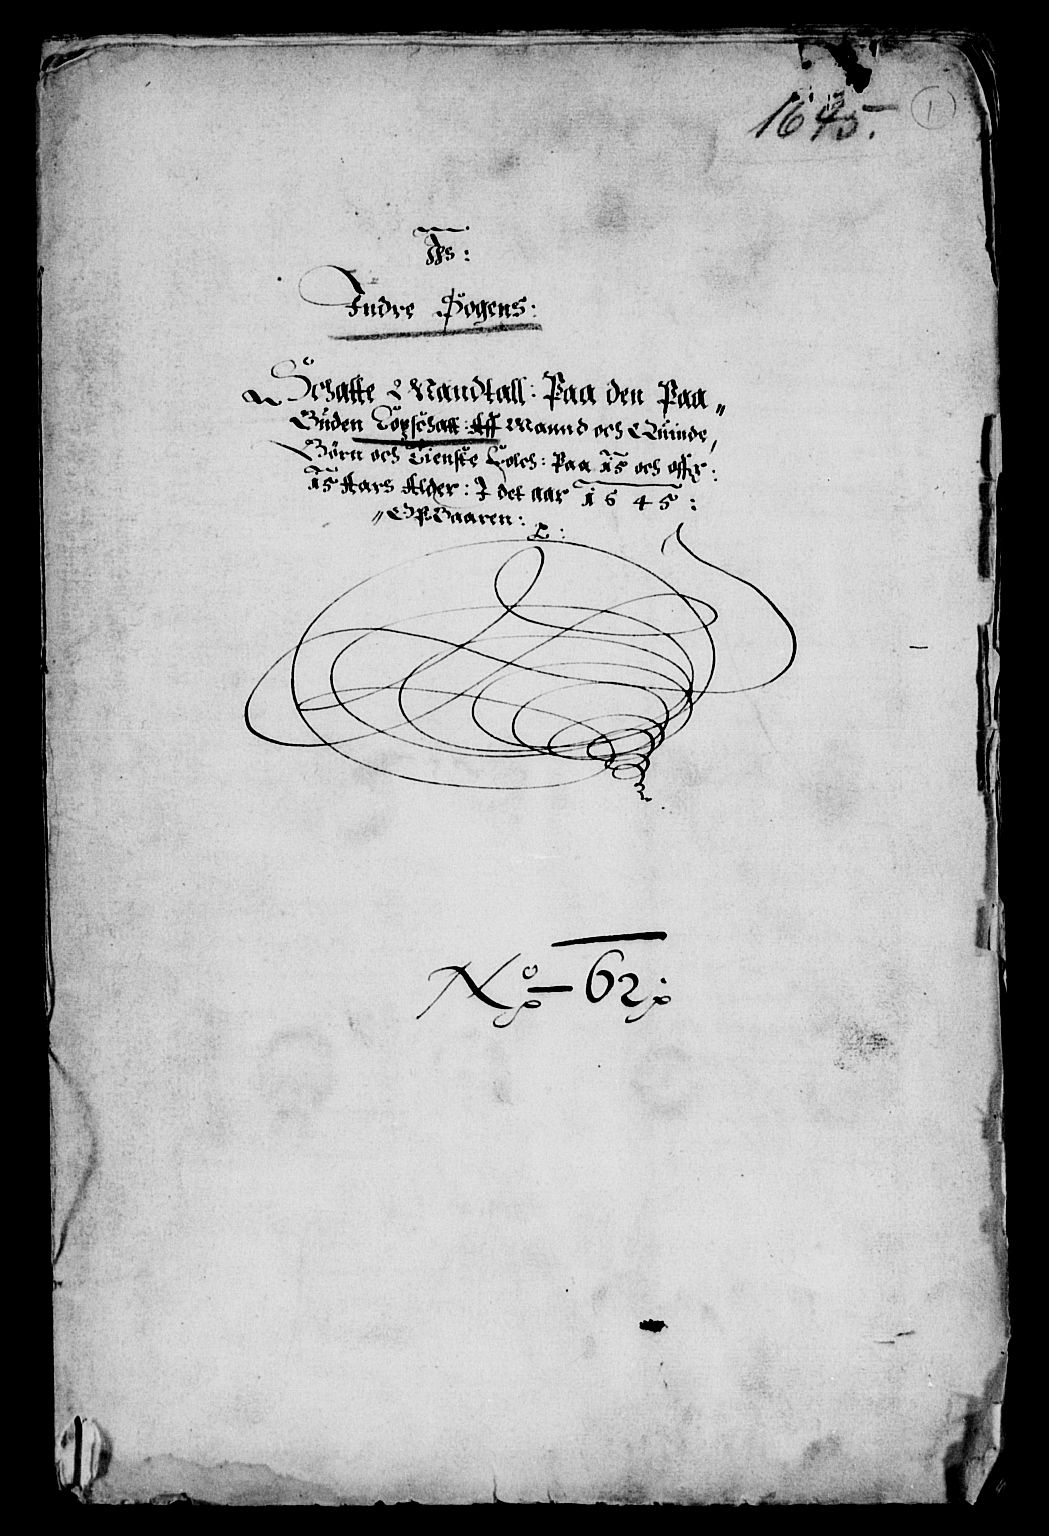 1645.
1
Jhs:
Indre Sogens:
Schatte Mandtall: Paa den Paa„
Buden Copschatt: Aff Mannd och Quinde,
Børn och Tienste Folch: Paa 15 och offr:
15 Aars Alder: I det aar 1645:
No 62